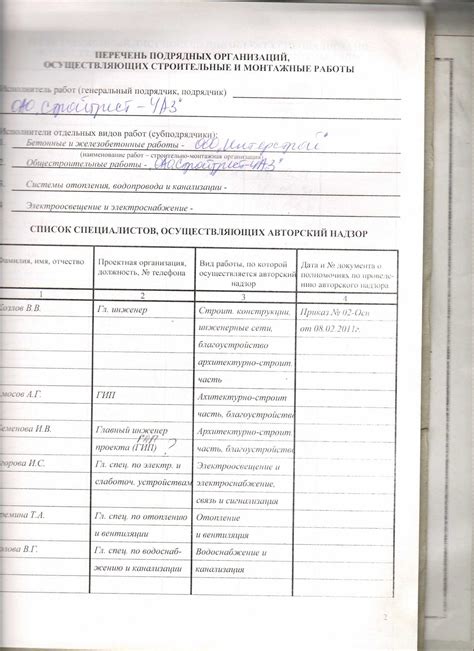 ПЕРЕЧЕНЬ ПОДРЯДНЫХ ОРГАНИЗАЦИЙ,
ОСУЩЕСТВЛЯЮЩИХ СТРОИТЕЛЬНЫЕ И МОНТАЖНЫЕ РАБОТЫ
Исполнитель работ (генеральный подрядчик, подрядчик)
ОАО „Стройтрест - ЧАЗ"
Исполнители отдельных видов работ (субподрядчики):
Бетонные и железобетонные работы - ООО „Интерстрой"
(наименование работ – строительно-монтажная организация)
Общестроительные работы - ОАО „Стройтрест-ЧАЗ"
3 Системы отопления, водопровода и канализации -
4 Электроосвещение и электроснабжение -
СПИСОК СПЕЦИАЛИСТОВ, ОСУЩЕСТВЛЯЮЩИХ АВТОРСКИЙ НАДЗОР
Фамилия, имя, отчество Проектная организация, должность, № телефона Вид работы, по которой осуществляется авторский надзор Дата и № документа о полномочиях по проведению авторского надзора
1 2 3 4
Козлов В.В. Гл. инженер Строит. конструкции, Приказ № 02-Осп
инженерные сети, от 08.02.2011г.
благоустройство
архитектурно-строит.
часть
мосов А.Г. ГИП Ахитектурно-строит
часть, благоустройство
Семенова И.В. Главный инженер Архитектурно-строит.
проекта (ГИП) ГАП ? часть, благоустройство
горова И.С. Гл. спец. по электр. и Электроосвещение и
слаботоч. устройствам электроснабжение,
связь и сигнализация
ремина Т.А. Гл. спец. по отоплению Отопление
и вентиляции и вентиляция
злова В.Г. Гл. спец. по водоснаб- Водоснабжение и
жению и канализации канализация
2